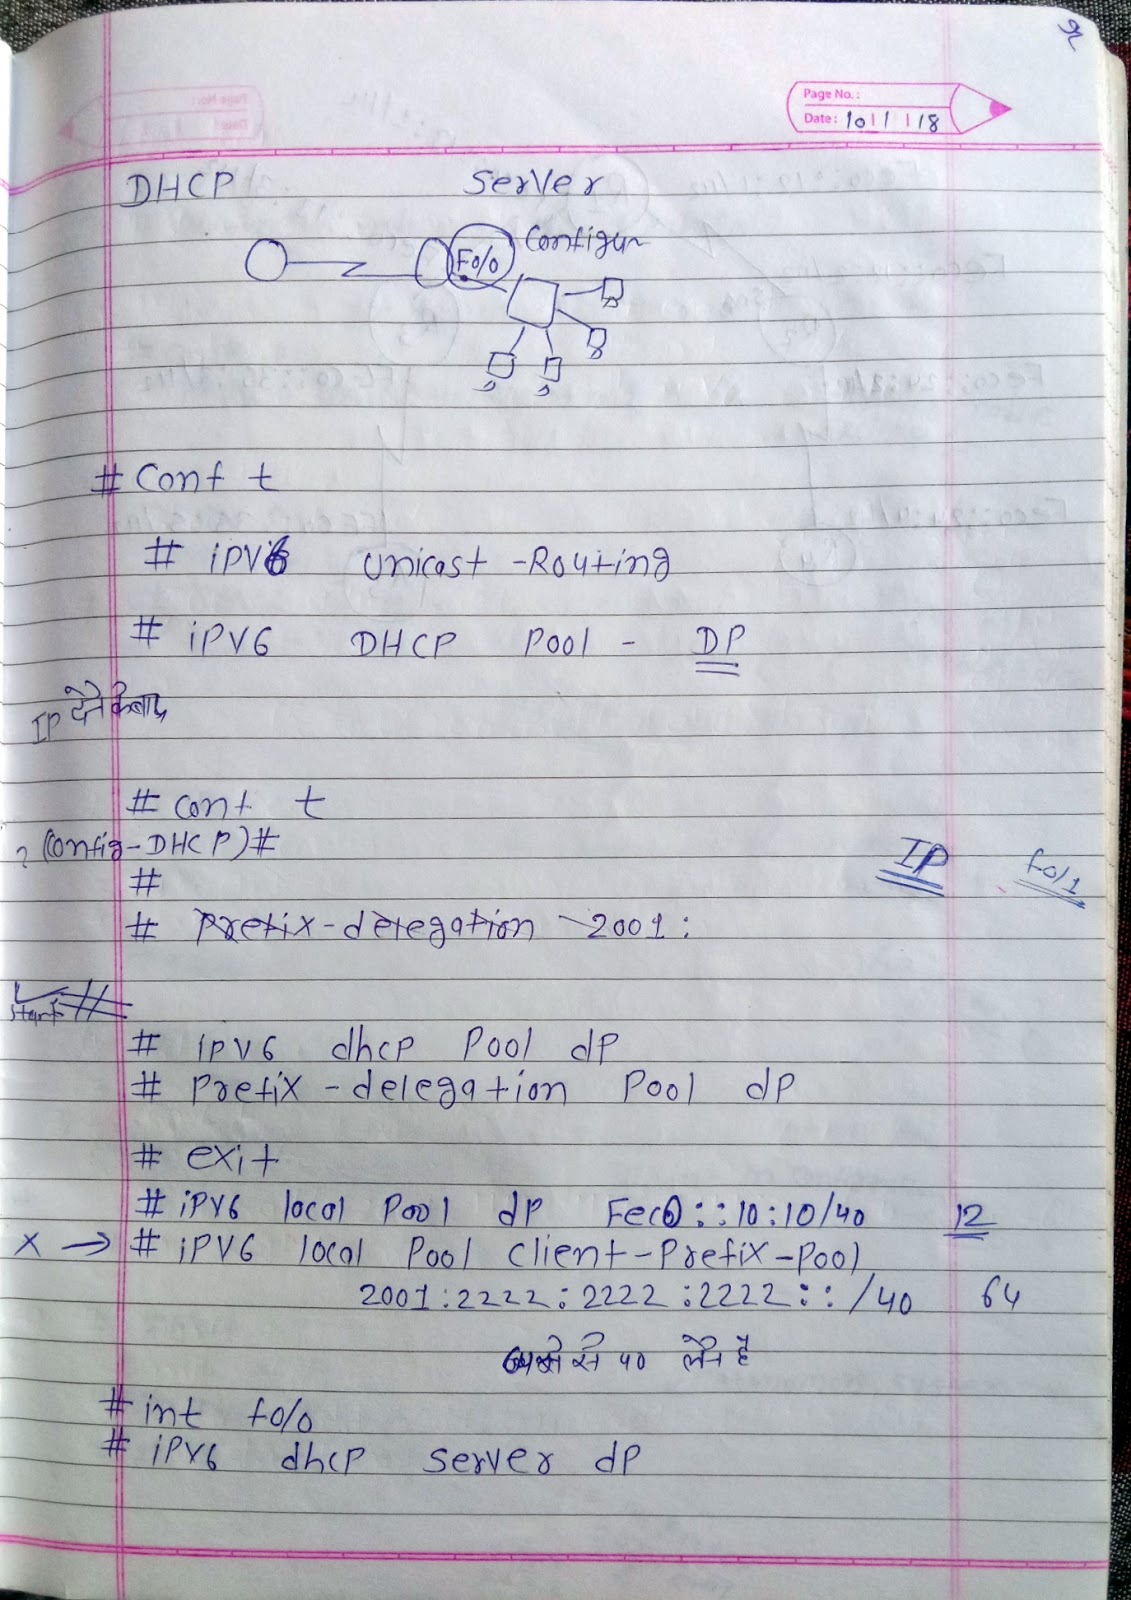 Page No.:
Date: 10/1/18
DHCP Server
F0/0 Configur
# Conf t
# iPV6 unicast -Routing
# iPV6 DHCP Pool - DP
IP देने के बाद
# conf t
(Config-DHCP)#
IP fo/1
#
# Prefix-delegation 2001:
Start #
# ipv6 dhcp Pool dP
# Prefix-delegation Pool dP
# exit
# iPV6 local Pool dP Fec0::10:10/40 12
X → # iPV6 local Pool Client-Prefix-Pool
2001:2222:2222:2222::/40 64
से 40 लेने है
# int fo/o
# iPV6 dhcp server dp